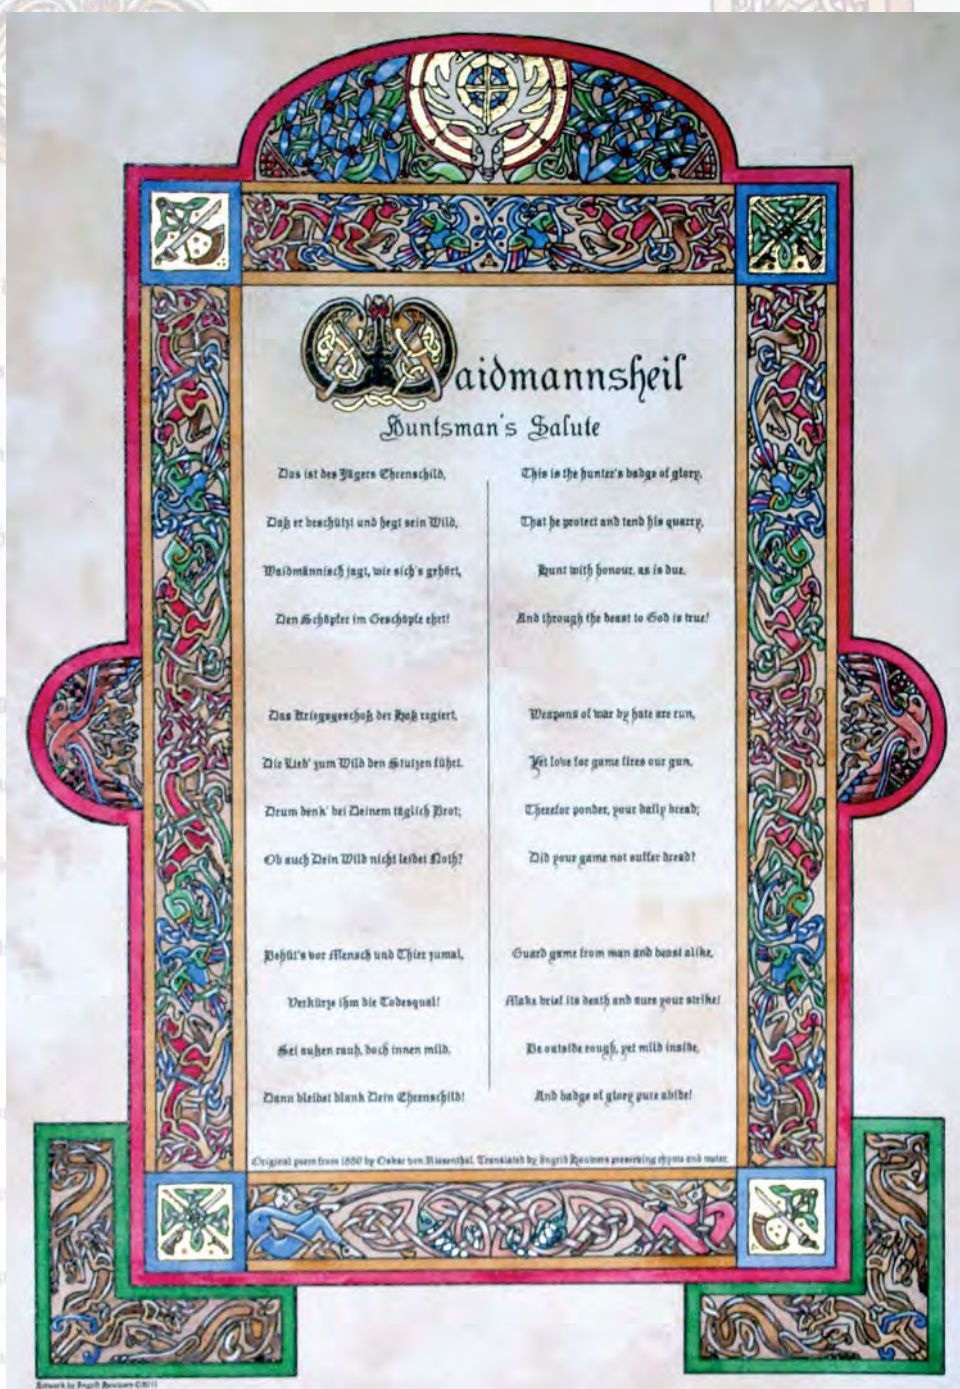 Waidmannsheil
Huntsman's Salute
Das ist des Jägers Ehrenschild,
Daß er beschützt und hegt sein Wild,
Waidmännisch jagt, wie sich's gehört,
Den Schöpfer im Geschöpfe ehrt!
Das Kriegsgeschoß der Haß regiert,
Die Lieb' zum Wild den Stutzen führt.
Drum denk' bei Deinem täglich Brot;
Ob auch Dein Wild nicht leidet Noth?
Behüt's vor Mensch und Thier zumal,
Verkürze ihm die Todesqual!
Sei außen rauh, doch innen mild,
Dann bleibet blank Dein Ehrenschild!
This is the hunter's badge of glory,
That he protect and tend his quarry,
Hunt with honour, as is due,
And through the beast to God is true!
Weapons of war by hate are run,
Yet love for game fires our gun,
Therefor ponder, your daily bread;
Did your game not suffer dread?
Guard game from man and beast alike,
Make brief its death and sure your strike!
Be outside rough, yet mild inside,
And badge of glory pure abide!
Original poem from 1880 by Oskar von Riesenthal. Translated by Ingrid Houwers preserving rhyme and meter.
Artwork by Ingrid Houwers ©2011